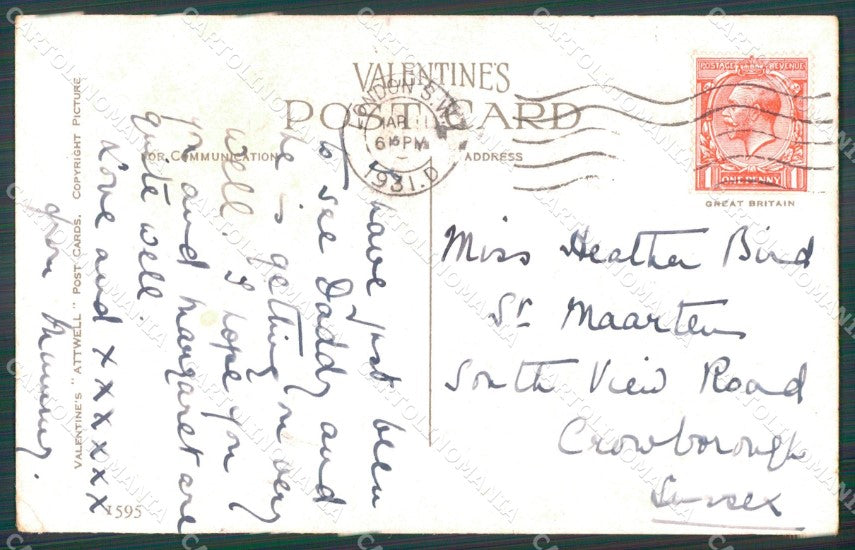 VALENTINE'S
POST CARD
FOR COMMUNICATION
ADDRESS
LONDON S.W.1
MAR 11
6 15 PM
1931. D
POSTAGE REVENUE
ONE PENNY
1 1
GREAT BRITAIN
VALENTINE'S "ATTWELL" POST CARDS. COPYRIGHT PICTURE
1595
I have just been
to see Daddy and
he is getting on very
well. I hope you
and Margaret are
quite well.
Love and x x x x x x
from Mummy.
Miss Heather Bird
St. Maartens
South View Road
Crowborough
Sussex
CARTOLINOMANIA